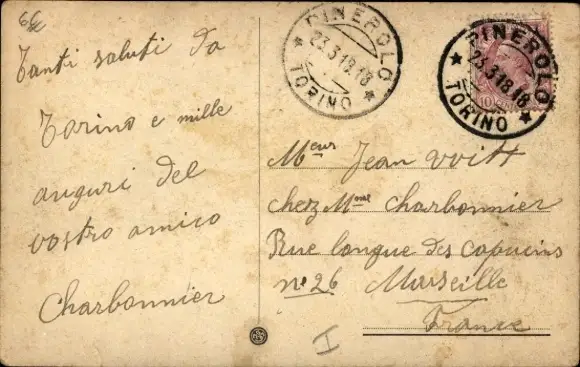 Tanti saluti da
Torino e mille
auguri del
vostro amico
Charbonnier
PINEROLO
23.3.18.18
★ TORINO ★
PINEROLO
23.3.18.18
★ TORINO ★
10
Meur Jean
chez Mme Charbonnier
Rue longue des capucins
no 26 Marseille
France
I